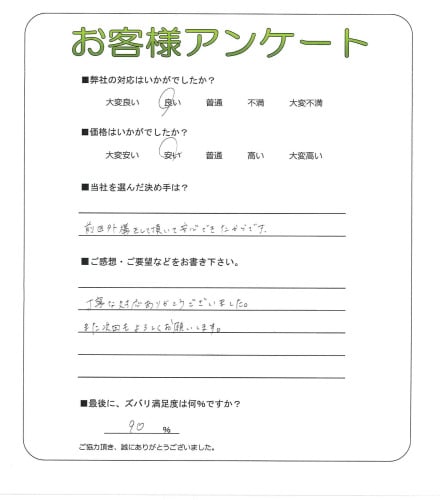 お客様アンケート
■弊社の対応はいかがでしたか？
大変良い 良い 普通 不満 大変不満
■価格はいかがでしたか？
大変安い 安い 普通 高い 大変高い
■当社を選んだ決め手は？
前回外構をして頂いて安心できたからです。
■ご感想・ご要望などをお書き下さい。
丁寧な対応ありがとうございました。
また次回もよろしくお願いします。
■最後に、ズバリ満足度は何％ですか？
90 ％
ご協力頂き、誠にありがとうございました。